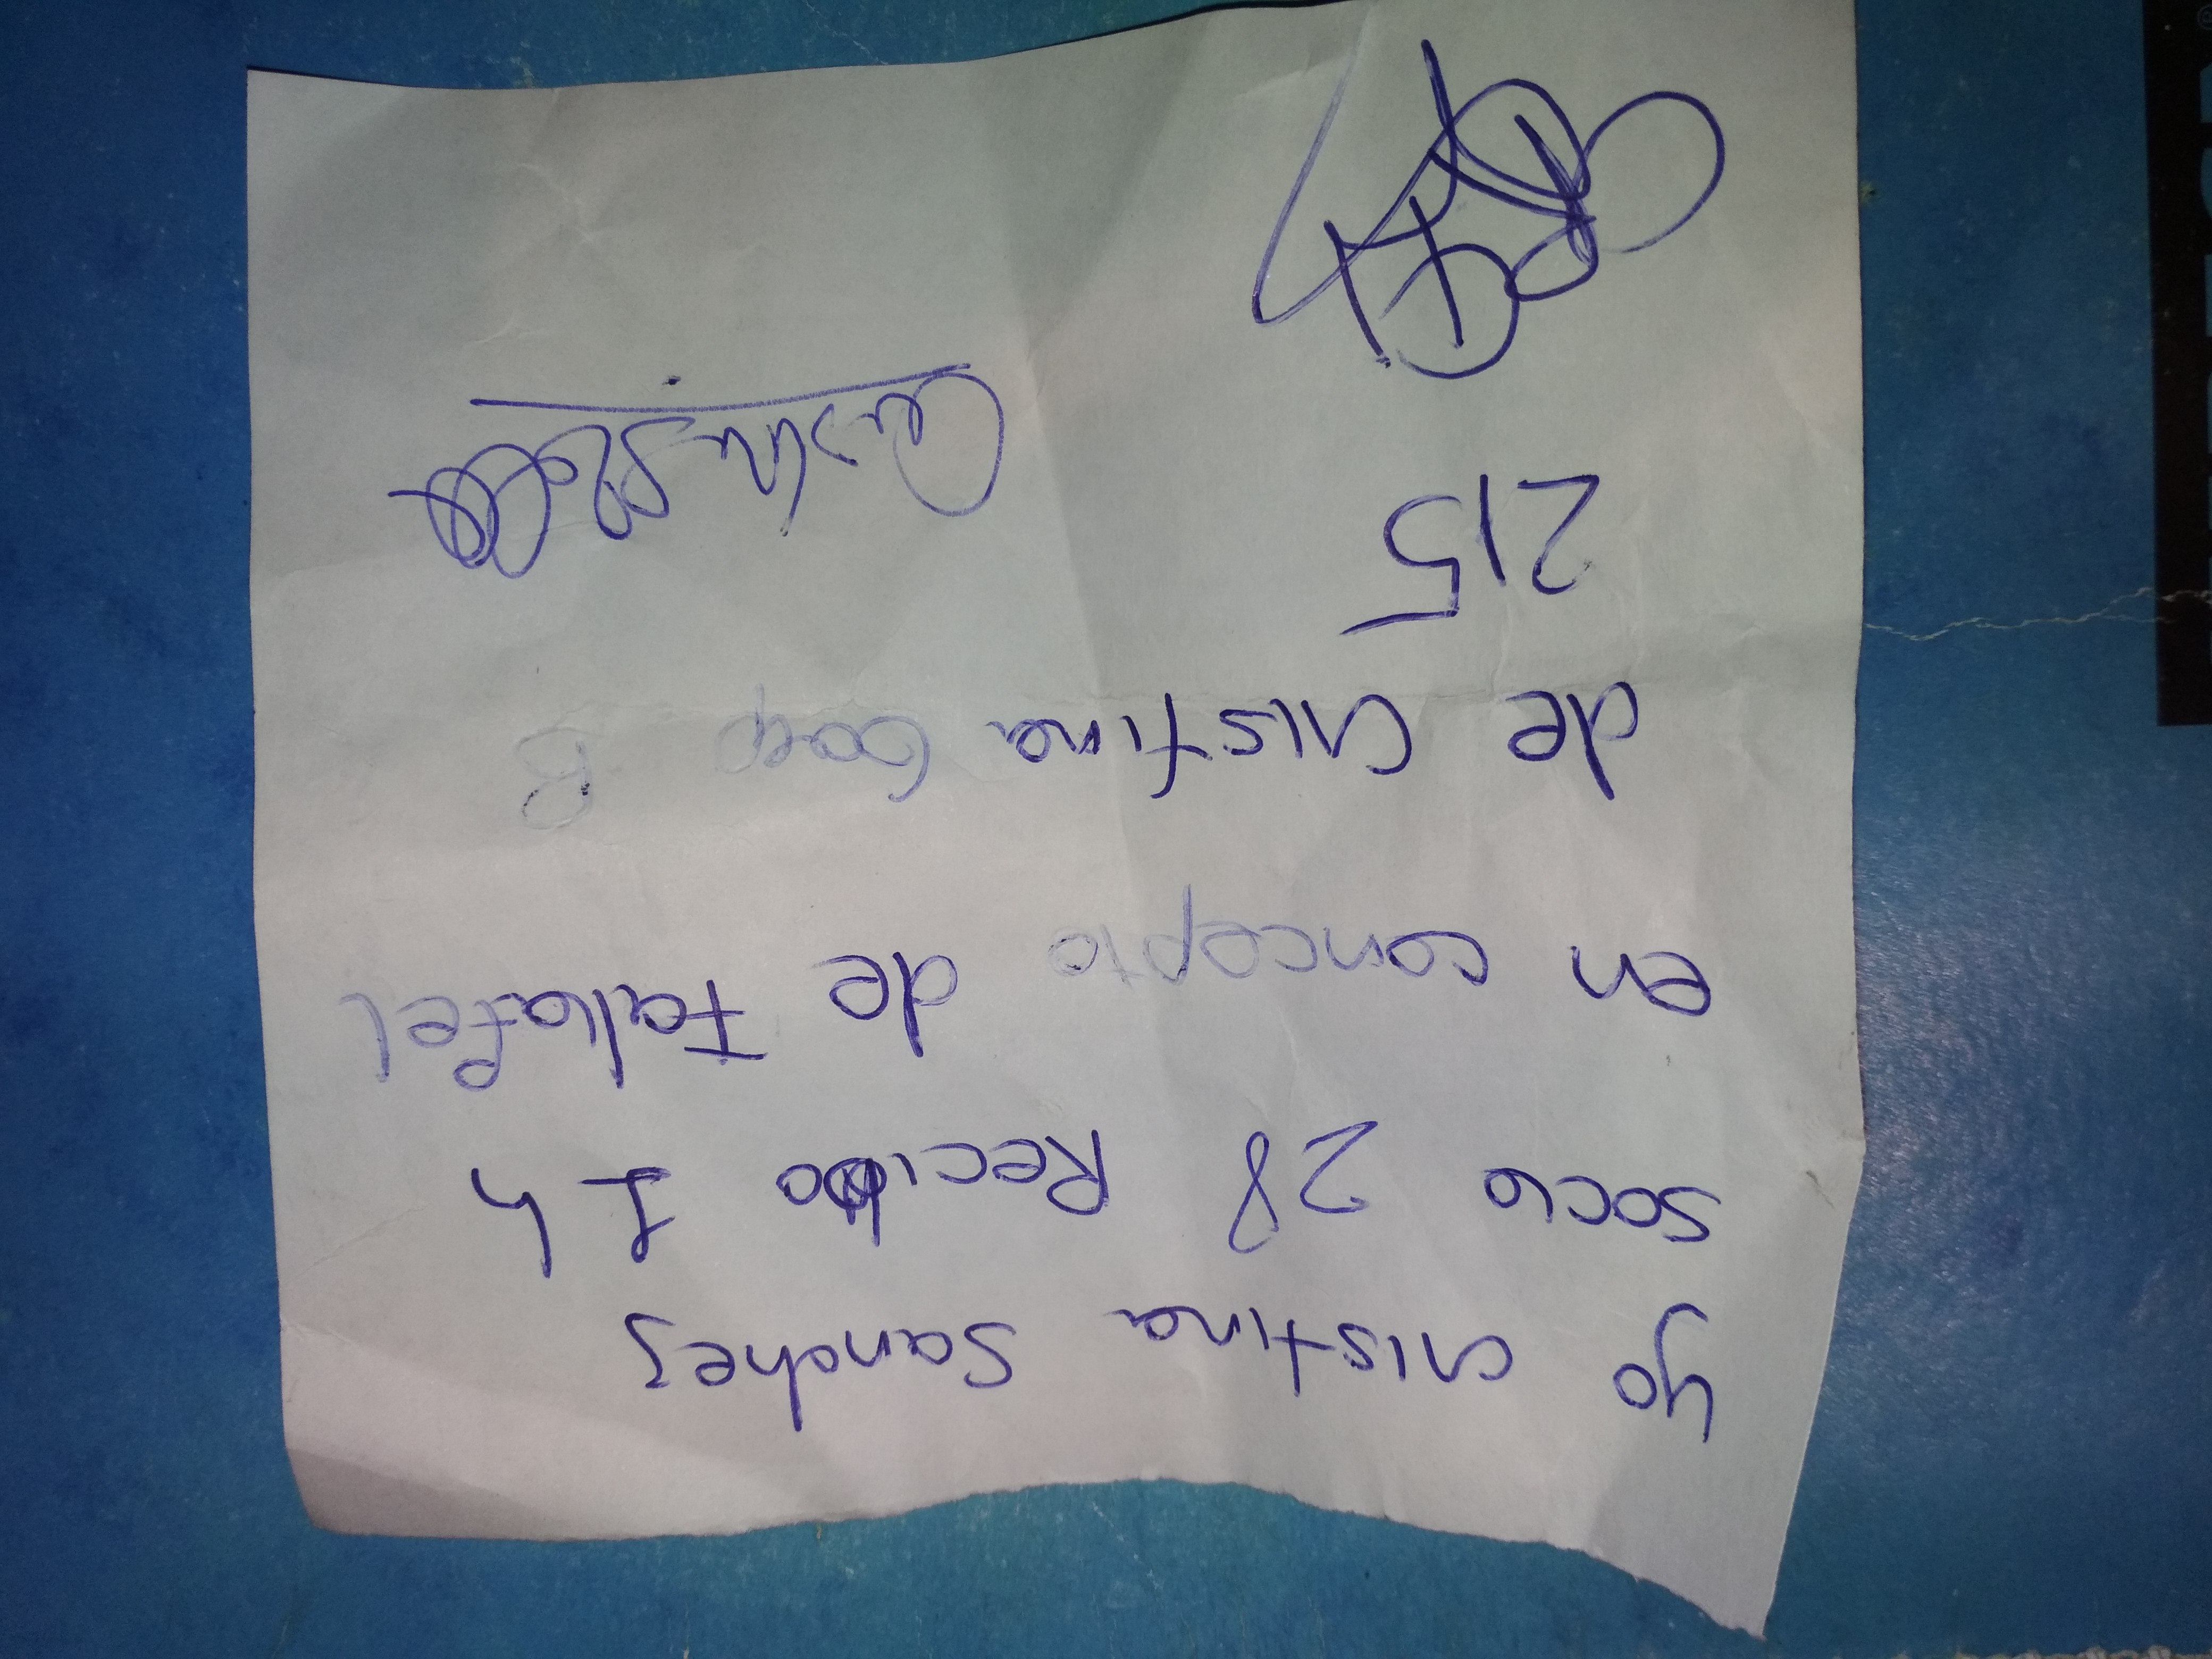 Yo Cristina Sanchez
socio 28 Recibo 1 h
en concepto de Fallafel
de Cristina
215